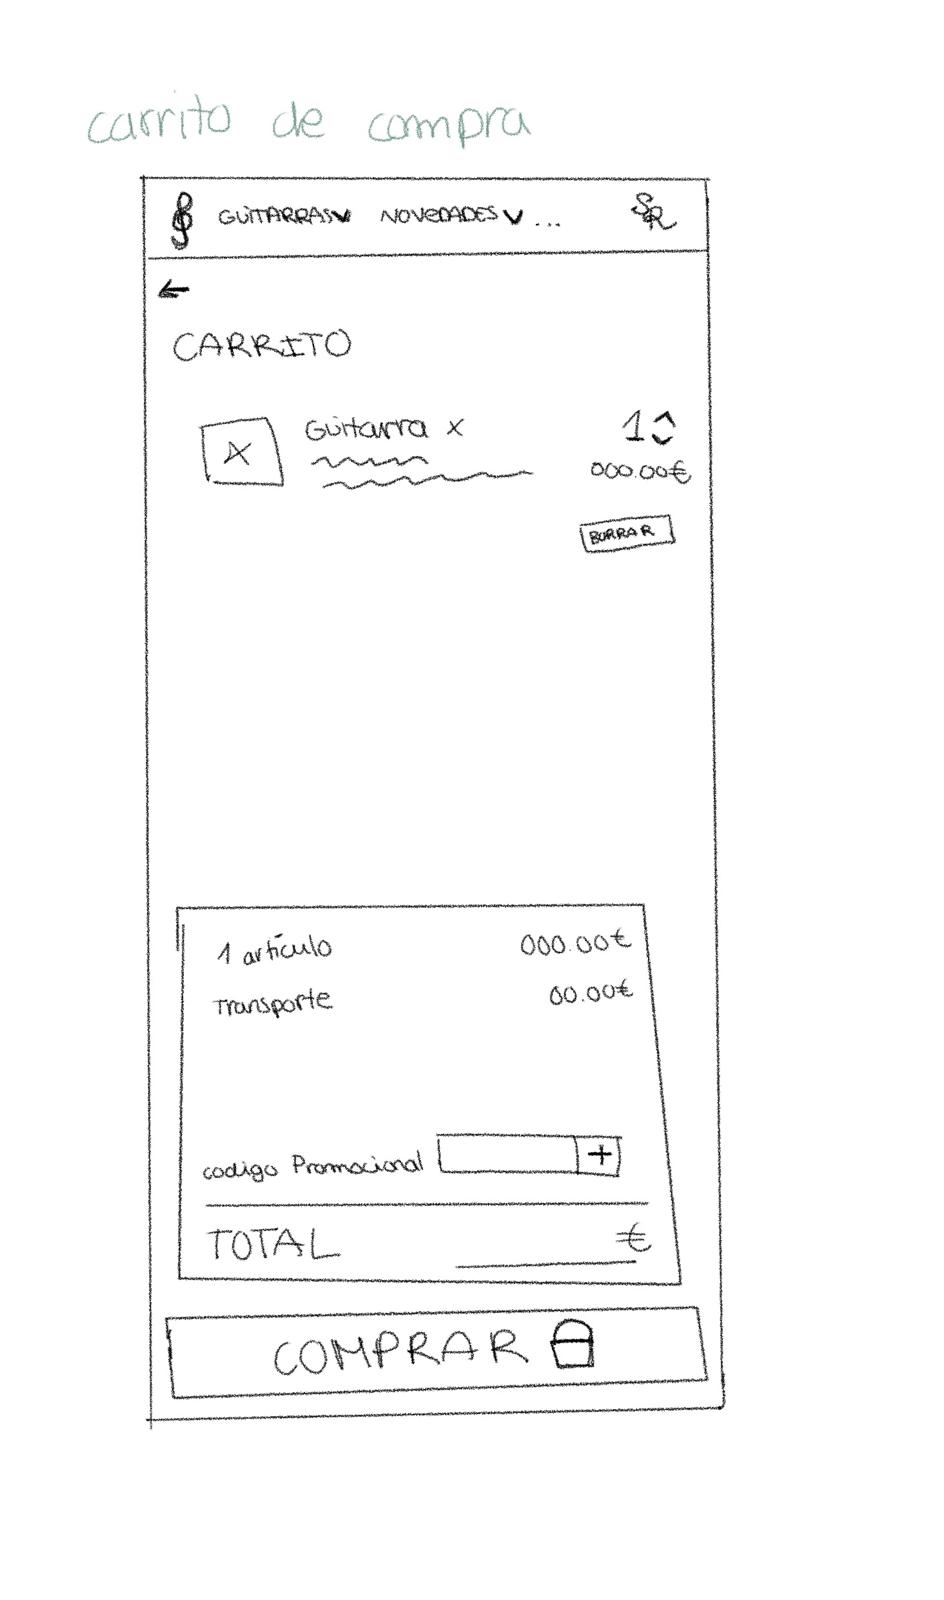 carrito de compra
GUITARRAS NOVEDADES ... SR
CARRITO
Guitarra x 1
000.00€
BORRAR
1 artículo 000.00€
Transporte 00.00€
codigo Promocional +
TOTAL €
COMPRAR